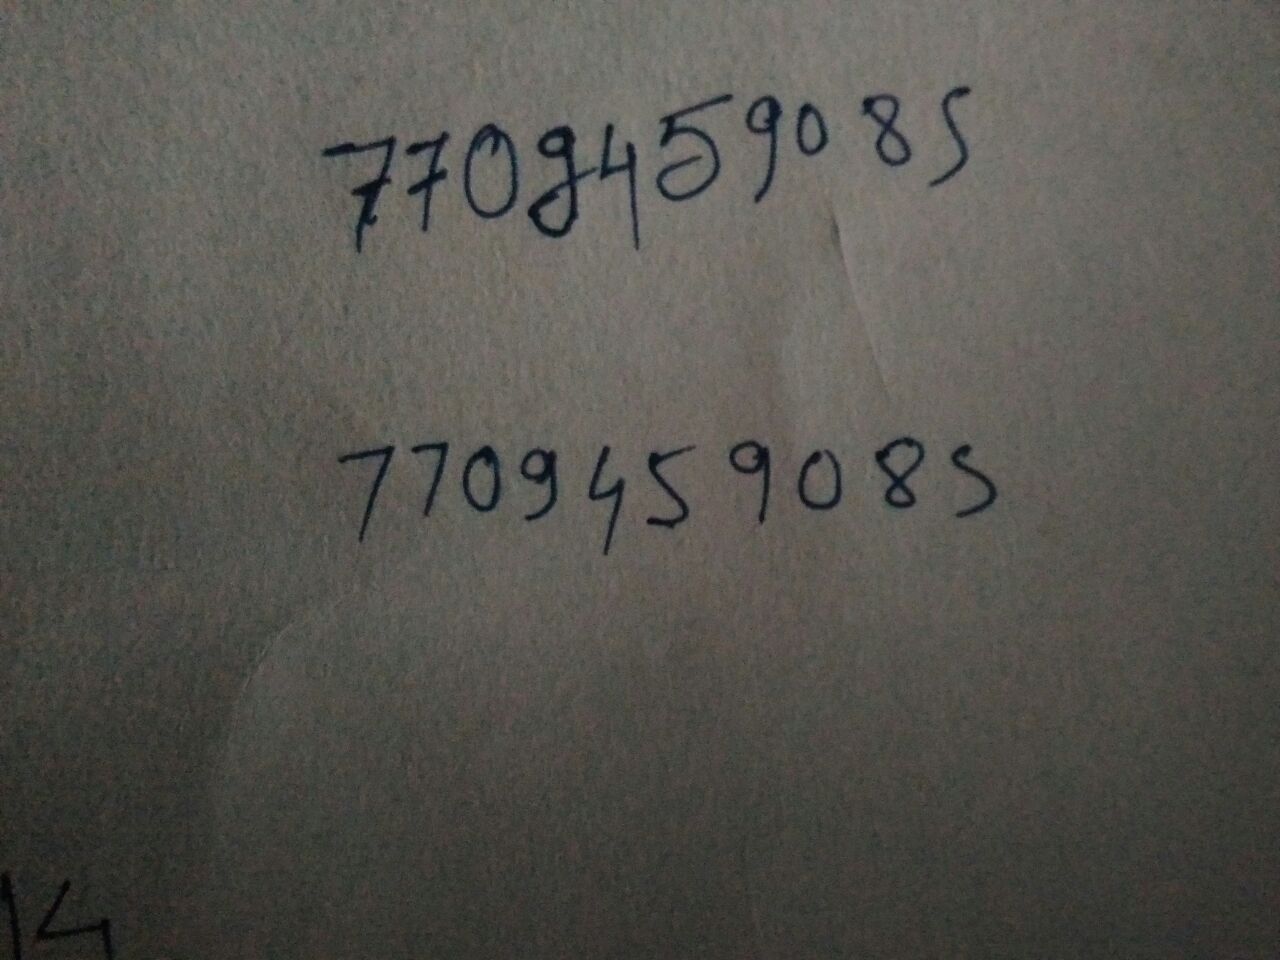 7709459085
7709459085
14